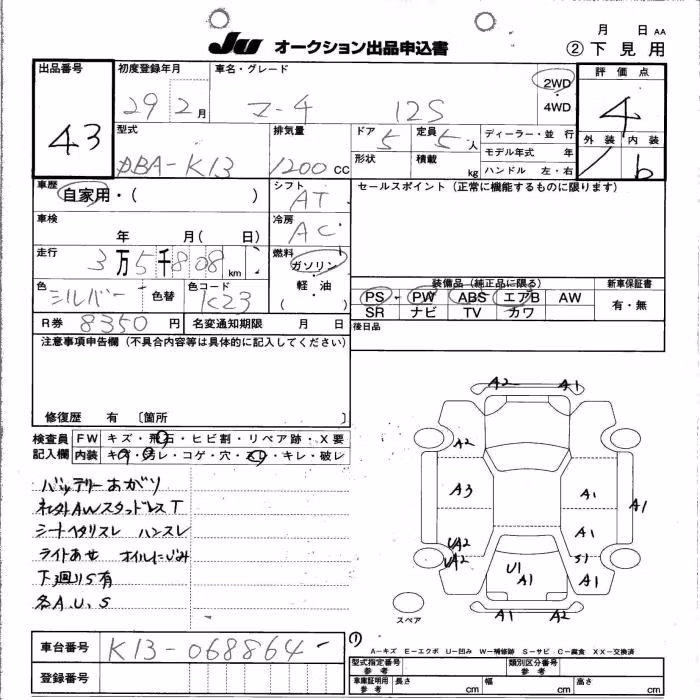 JU オークション出品申込書
月 日 AA
② 下見用
出品番号
43
初度登録年月
29 2月
車名・グレード
マーチ 12S
2WD
・
4WD
評価点
4
外装 内装
b
型式
DBA-K13
排気量
1200 CC
ドア 5
形状
定員 5人
積載 kg
ディーラー・並 行
モデル年式 年
ハンドル 左・右
車歴
自家用・( )
シフト
AT
セールスポイント (正常に機能するものに限ります)
車検
年 月( 日)
冷房
AC
走行
3万5千808km
燃料
ガソリン
・
軽・油
( )
色
シルバー
色替
色コード
K23
装備品 (純正品に限る)
PS PW ABS エアB AW
SR ナビ TV カワ
新車保証書
有・無
R券 8350円
名変通知期限 月 日
後日品
注意事項申告欄 (不具合内容等は具体的に記入してください)
修復歴 有 〔箇所 〕
検査員
記入欄
FW キズ・飛石・ヒビ割・リペア跡・X要
内装 キズ・汚レ・コゲ・穴・スレ・キレ・破レ
バッテリーあがり
社外AWスタッドレスT
シートヘタリスレ ハンスレ
ライトあせ オイルにじみ
下廻りS有
各A.U.S
A2 A1
A2
A3 A1 A1
A1
UA2
UA2 S1
A1
U1
A1
A1 A2
スペア
車台番号
K13-068864
登録番号
①
A－キズ E－エクボ U－凹み W－補修跡 S－サビ C－腐食 XX－交換済
型式指定番号
参考
類別区分番号
参考
車庫証明用
参考
長さ cm
幅 cm
高さ cm